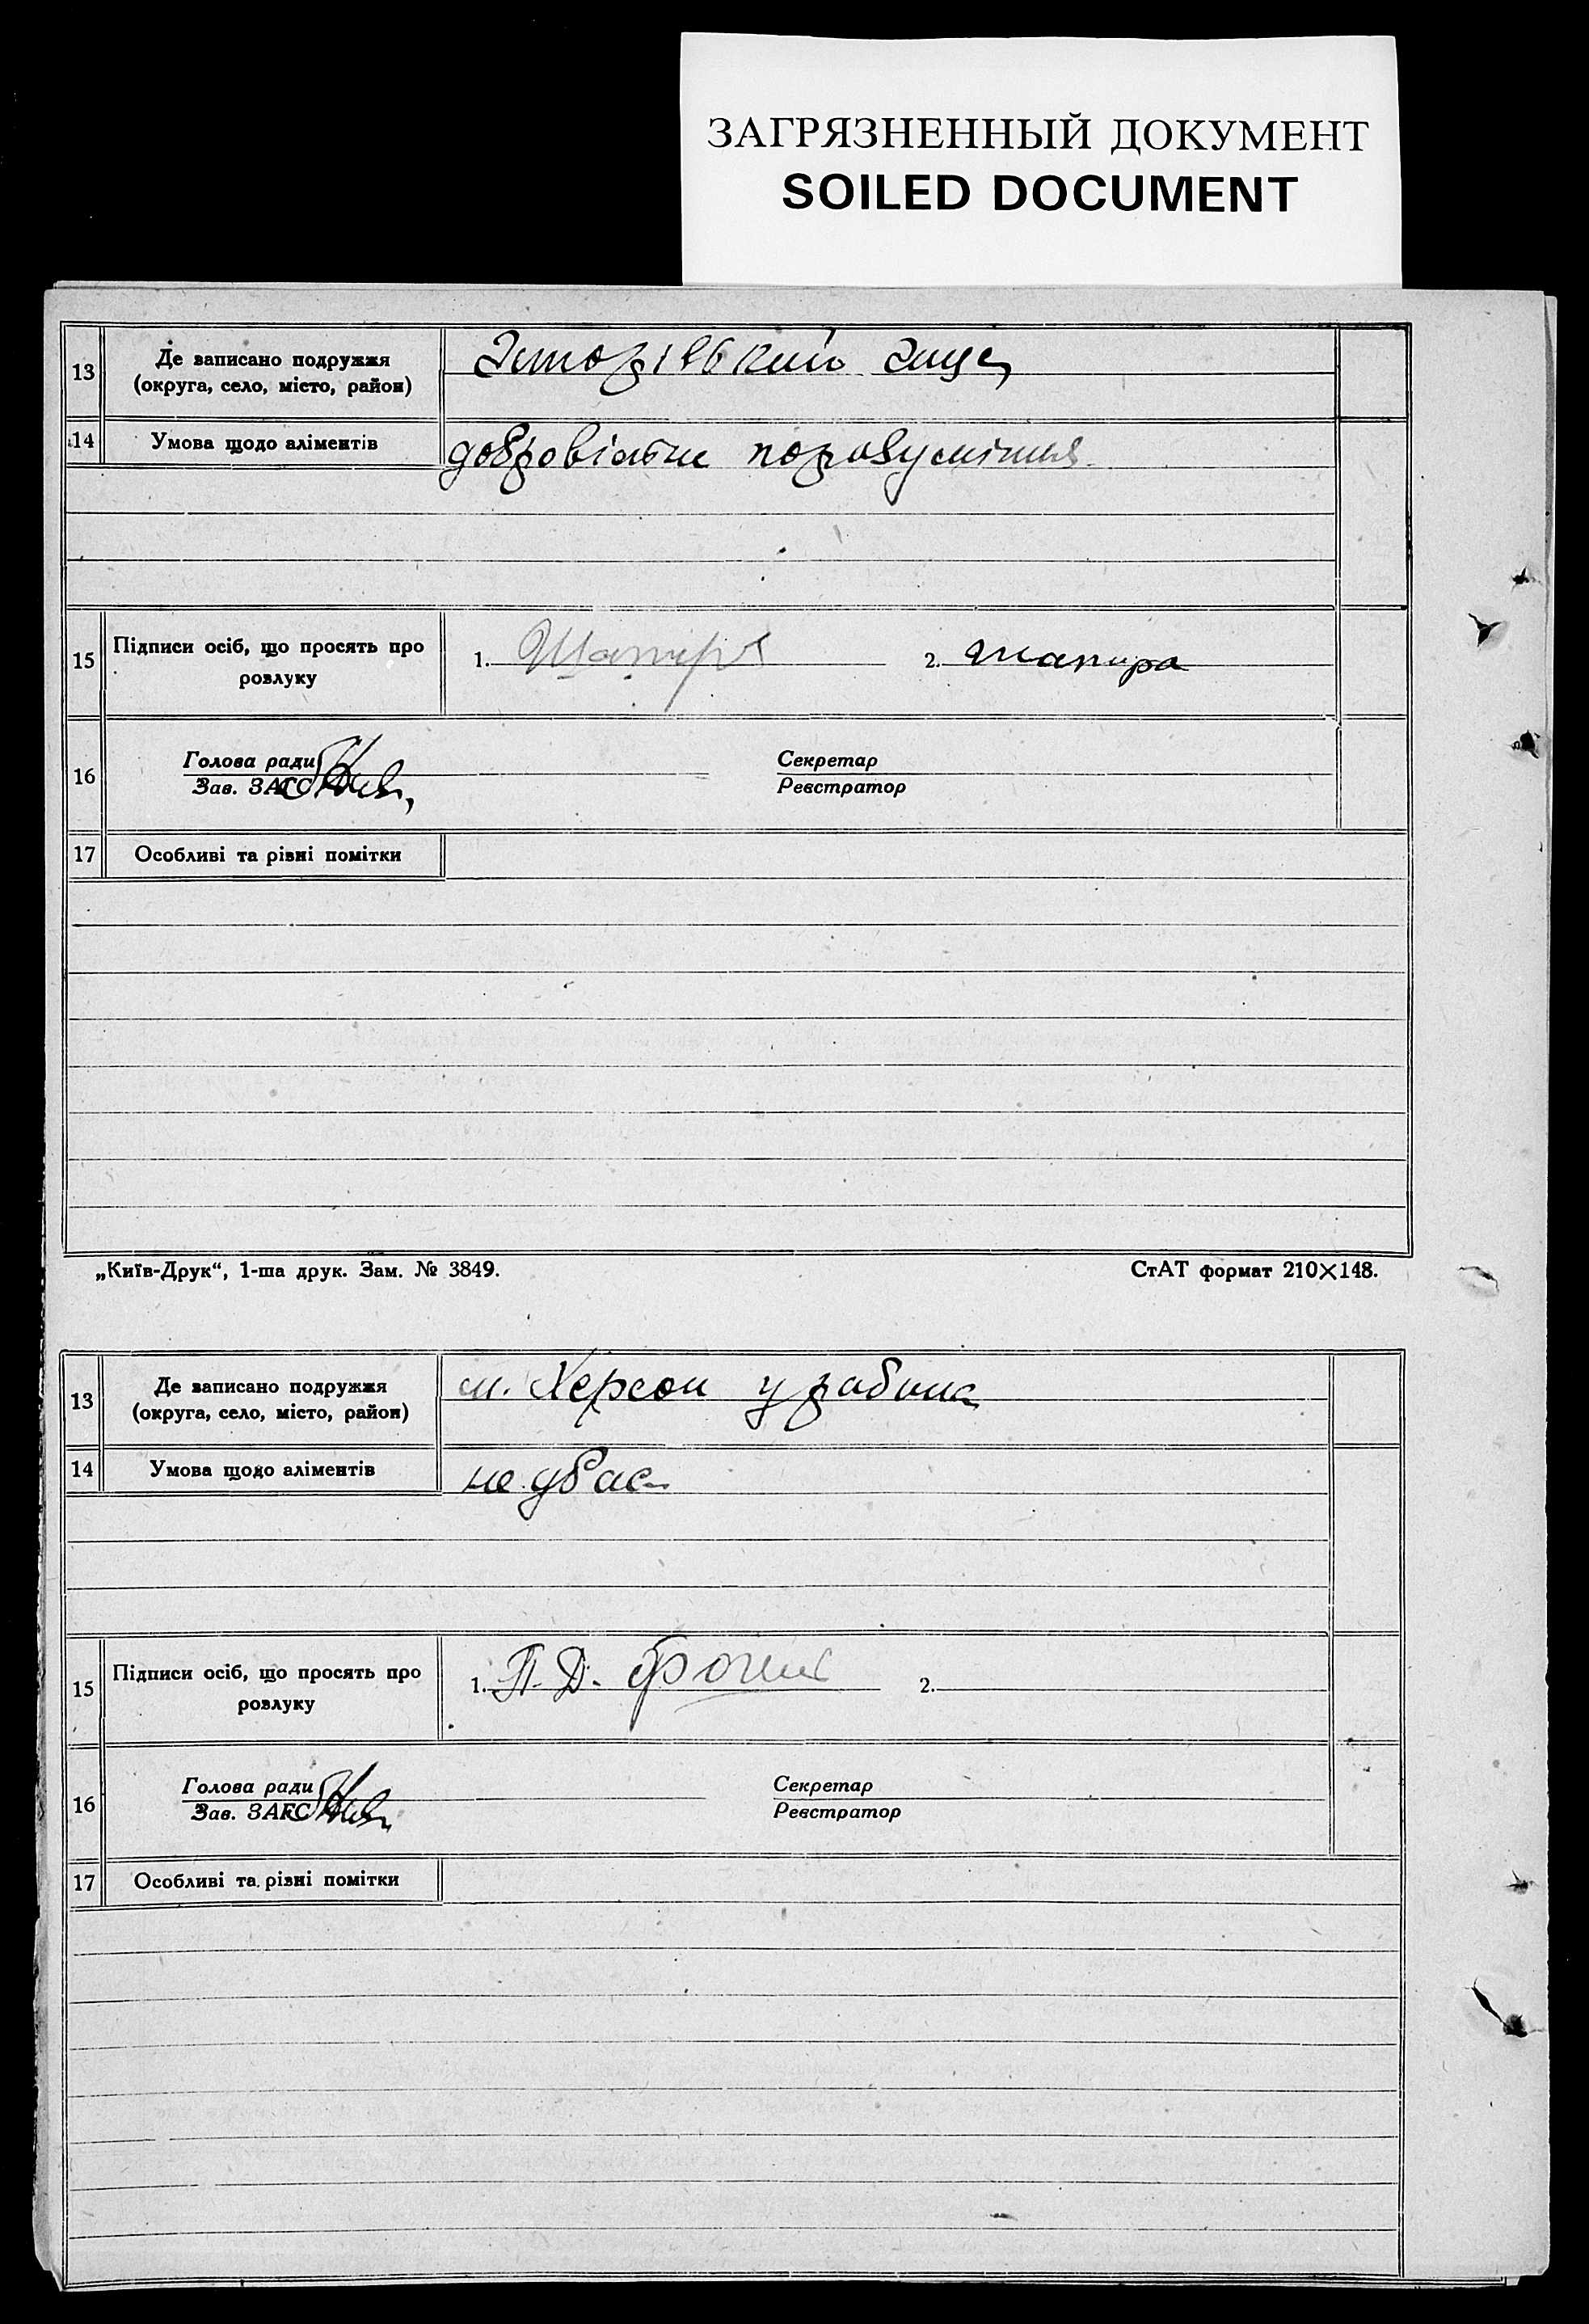 ЗАГРЯЗНЕННЫЙ ДОКУМЕНТ
SOILED DOCUMENT
13 Де записано подружжя
(округа, село, місто, район)
14 Умова щодо аліментів
добровільне порозуміння
15 Підписи осіб, що просять про
розлуку
1. Шапиро 2. Шапиро
16 Голова ради Секретар
Зав. ЗАГС Реєстратор
17 Особливі та різні помітки
„Київ-Друк“, 1-ша друк. Зам. № 3849. СтАТ формат 210×148.
13 Де записано подружжя м. Херсон у рабина
(округа, село, місто, район)
14 Умова щодо аліментів
15 Підписи осіб, що просять про
розлуку
1. П. Д. 2.
16 Голова ради Секретар
Зав. ЗАГС Реєстратор
17 Особливі та різні помітки